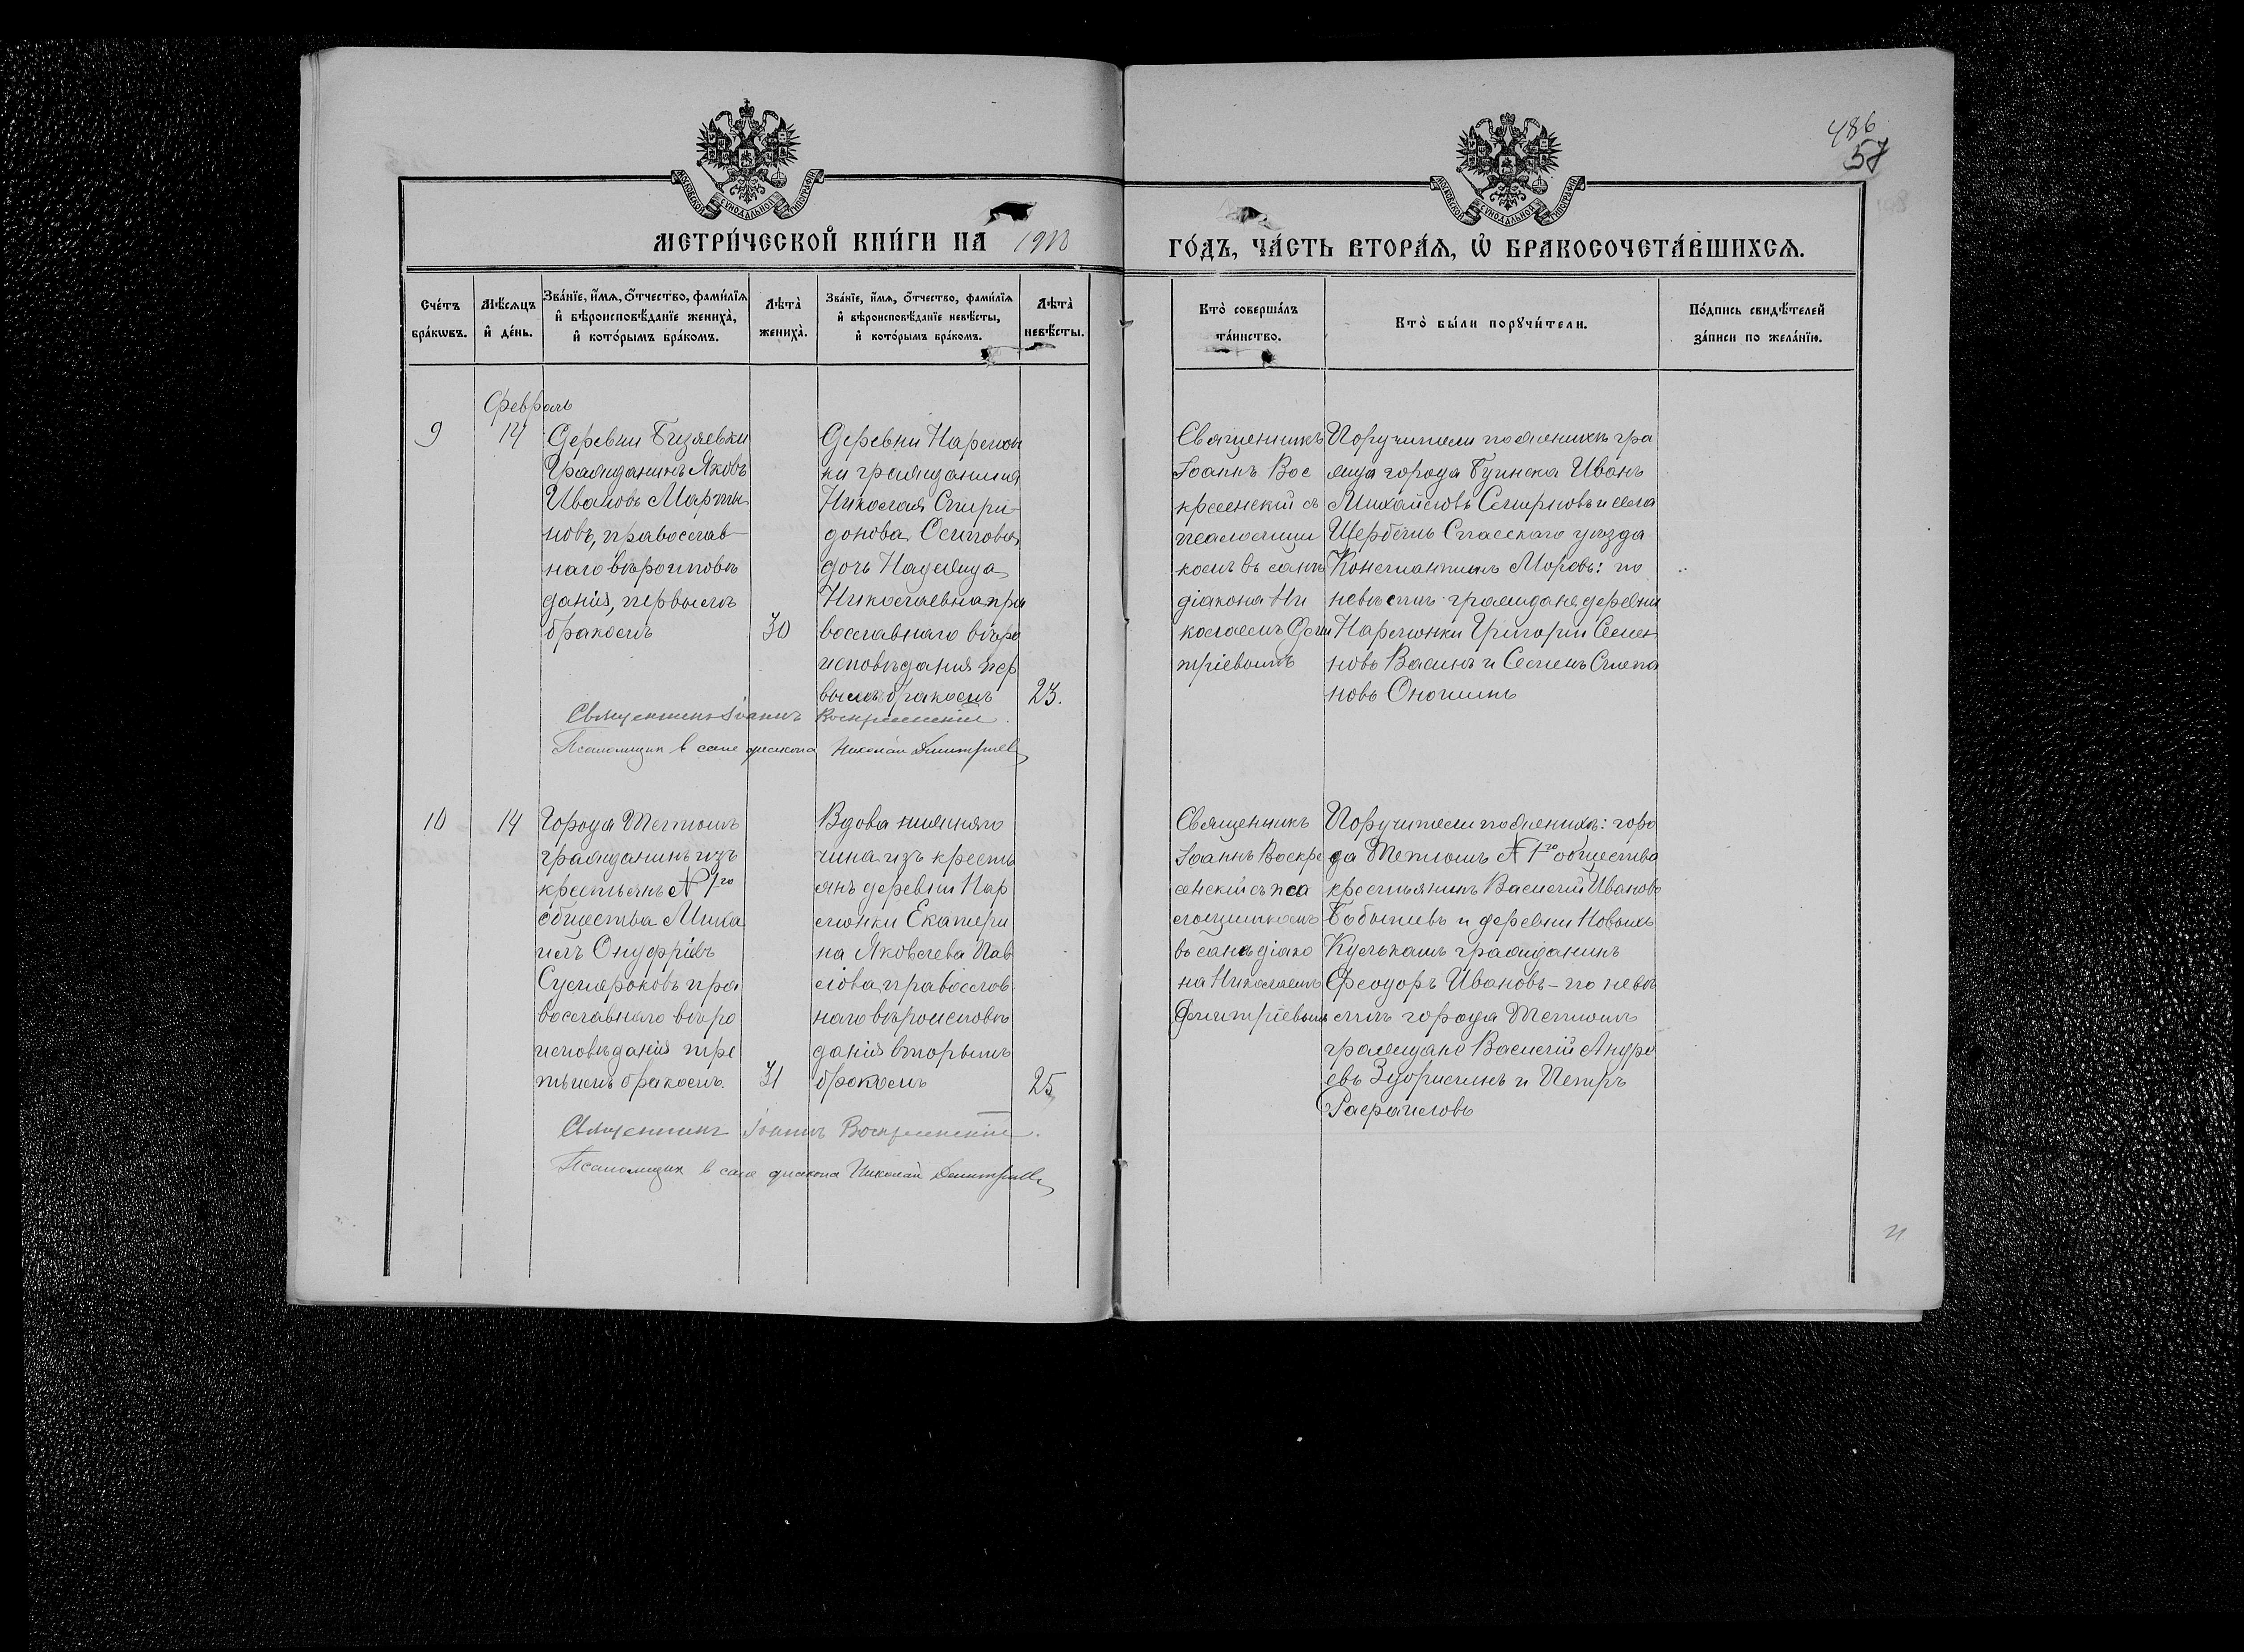 486
57
МОСКОВСКОЙ СѴНОДАЛЬНОЙ ТИПОГРАФІИ
МОСКОВСКОЙ СѴНОДАЛЬНОЙ ТИПОГРАФІИ
МЕТРИ́ЧЕСКОЙ КНИ́ГИ НА 1918
ГО́ДЪ, ЧА́СТЬ ВТОРА́Я, Ѡ БРАКОСОЧЕТА́ВШИХСЯ.
Сче́тъ
бра́кѡвъ.
Мѣ́сяцъ
и де́нь.
Зва́нїе, и́мя, о́тчество, фами́лїя
и вѣроисповѣ́данїе жениха̀,
и кото́рымъ бра́комъ.
Лѣта̀
жениха̀.
Зва́нїе, и́мя, о́тчество, фами́лїя
и вѣроисповѣ́данїе невѣ́сты,
и кото́рымъ бра́комъ.
Лѣта̀
невѣ́сты.
Кто̀ соверша́лъ
та́инство.
Кто̀ бы́ли порꙋчи́тели.
По́дпись свидѣ́телей
за́писи по жела́нїю.
Февраль
9
14
Деревни Бизяевки
Гражданинъ Яковъ
Ивановъ Марты
новъ, православ-
наго вѣроисповѣ
данія, первымъ
бракомъ
30
Деревни Нармон
ки гражданина
Николая Спири-
донова Осипова
дочь Надежда
Николаевна пра
вославнаго вѣро
исповѣданія пер
вымъ бракомъ
23.
Священникъ
Іоаннъ Вос
кресенскій съ
псаломщи
комъ въ санѣ
діакона Ни
колаемъ Дми
тріевымъ
Поручители по женихѣ гра
жда города Буинска Иванъ
Михайловъ Смирновъ и села
Щербень Спасскаго уѣзда
Константинъ Моровъ: по
невѣстѣ граждане деревни
Нармонки Григорій Семен
новъ Васинъ и Семенъ Степа
новъ Оночинъ
Священникъ Іоаннъ Воскресенскій.
Псаломщик в сане диакона Николай Димитриев
10
14
Города Тетюшъ
гражданинъ изъ
крестьянъ № 1го
общества Миха
илъ Онуфріевъ
Сумароковъ пра
вославнаго вѣро
исповѣданія тре
тьимъ бракомъ.
31
Вдова нижняго
чина изъ кресть
янъ деревни Нар
монки Екатери
на Яковлева Пав
лова православ
наго вѣроисповѣ
данія вторымъ
бракомъ
25
Священникъ
Іоаннъ Воскре
сенскій съ пса
ломщикомъ
въ санѣ діако
на Николаемъ
Дмитріевымъ
Поручители по женихѣ: горо
да Тетюшъ № 1го общества
крестьянинъ Василій Ивановъ
Бобышевъ и деревни Новыхъ
Кулькашъ гражданинъ
Феодоръ Ивановъ - по невѣ
стѣ города Тетюшъ
граждане Василій Андре
евъ и Петръ
Рафаиловъ
Священникъ Іоаннъ Воскресенскій.
Псаломщик в сане диакона Николай Димитриев